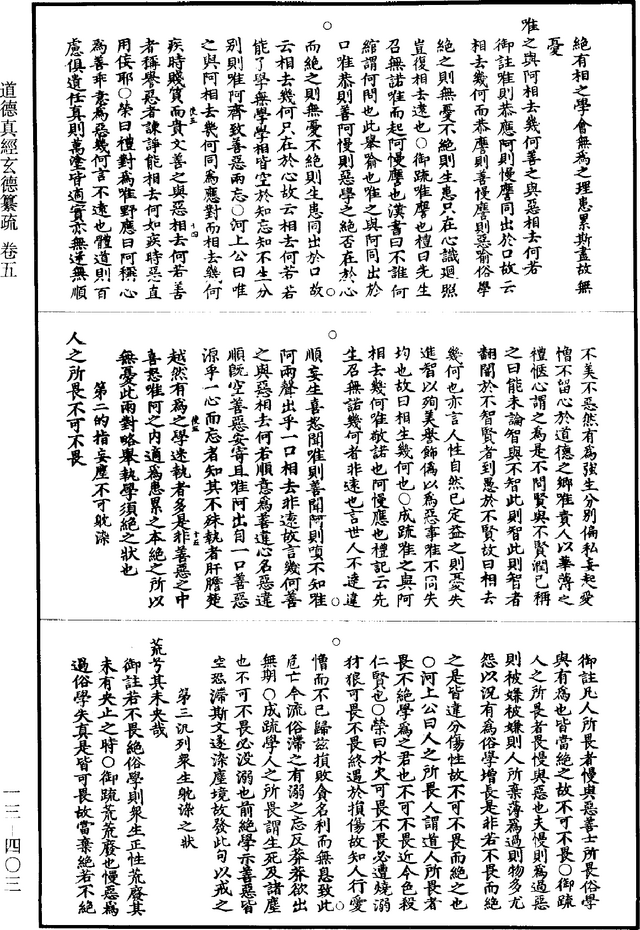 絕有相之學會無為之理患累斯盡故無
憂
唯之與阿相去幾何善之與惡相去何若
御註唯則恭應阿則慢譍同出於口故云
相去幾何而恭譍則善慢譍則惡喻俗學
絕之則無憂不絕則生患只在心識迴照
豈復相去遠也○御疏唯譍也禮曰先生
召無諾唯而起阿慢譍也漢書曰不誰何
綰謂何問也此舉喻也唯之與阿同出於
口唯恭則善阿慢則惡學之絕否在於心
而絕之則無憂不絕則生患同出於口故
云相去幾何只在於心故云相去何若若
能了學無學學相皆空於知忘知不生分
別則唯阿齊致善惡兩忘○河上公曰唯
之與阿相去幾何同為應對而相去幾何
疾時賤質而貴文善之與惡相去何若善
者稱譽惡者諫諍能相去何如疾時惡直
用佞耶○榮曰禮對為唯野應曰阿稱心
為善乖意為惡幾何言不遠也體道則百
慮俱遣任真則萬塗皆適實亦無逆無順
不美不惡然有為強生分別偏私妄起愛
憎不留心於道德之鄉唯貴人以華薄之
禮愜心謂之為是不問賢與不賢潤己稱
之曰能未論智與不智此則智者
翻闇於不智賢者到愚於不賢故曰相去
幾何也亦言人性自然已定益之則憂失
進智以殉美譽飾偽以為惡事雖不同失
均也故曰相生幾何也○成疏唯之與阿
相去幾何唯敬諾也阿慢應也禮記云先
生召無諾幾何者非遠也言世人不達違
順妄生喜怒聞唯則善聞阿則嗔不知唯
阿兩聲出乎一口相去非遠故言幾何善
之與惡相去何若順意為善違心名惡違
順既空善惡安寄且唯阿出自一口善惡
源乎一心而忘者知其不殊執者肝膽楚
越然有為之學迷執者多是非善惡之中
喜怒唯阿之內適為患累之本絕之所以
無憂此兩對略舉執學須絕之狀也
第二的指妄塵不可躭染
人之所畏不可不畏
御註凡人所畏者慢與惡善士所畏俗學
與有為也皆當絕之故不可不畏○御疏
人之所畏者畏慢與惡也夫慢則為過惡
則被嫌被嫌則人所棄薄為過則物多尤
怨以況有為俗學增長是非若不畏而絕
之是皆違分傷性故不可不畏而絕之也
○河上公曰人之所畏人謂道人所畏者
畏不絕學為之君也不可不畏近令色殺
仁賢也○榮曰水火可畏不畏必遭燒溺
犲狼可畏不畏終遇於損傷故知人行愛
憎而不已歸茲損敗貪名利而無息致此
危亡今流俗滯之有溺之忘反莽莽欲出
無期○成疏學人之所畏謂生死及諸塵
也不可不畏必沒溺也前絕學示善惡皆
空恐滯斯文遂染塵境故發此句以戒之
第三汎列衆生躭染之狀
荒兮其未央哉
御註若不畏絕俗學則衆生正性荒廢其
未有央止之時○御疏荒荒廢也慢惡為
過俗學失真是皆可畏故當棄絕若不絕
道德真經玄德纂疏 卷五
一三-四〇三